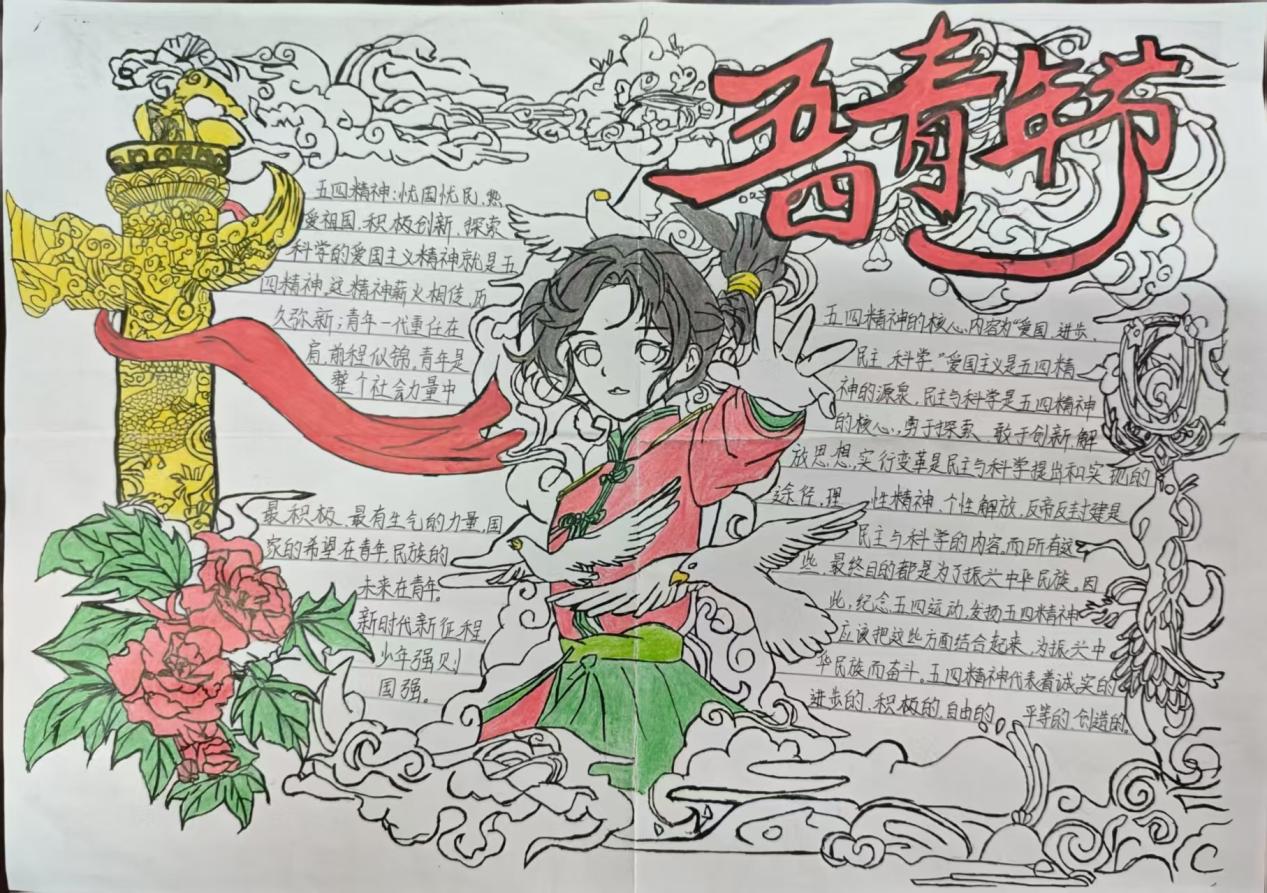 五四青年节
五四精神:忧国忧民,热
爱祖国,积极创新,探索
科学的爱国主义精神就是五
四精神。这精神薪火相传,历
久弥新;青年一代重任在
肩,前程似锦。青年是
整个社会力量中
最积极、最有生气的力量,国
家的希望在青年,民族的
未来在青年。
新时代新征程
少年强则
国强。
五四精神的核心内容为“爱国、进步、
民主、科学。”爱国主义是五四精
神的源泉,民主与科学是五四精神
的核心,勇于探索、敢于创新、解
放思想、实行变革是民主与科学提出和实现的
途径,理一性精神、个性解放、反帝反封建是
民主与科学的内容,而所有这
些,最终目的都是为了振兴中华民族。因
此,纪念五四运动,发扬五四精神
应该把这些方面结合起来,为振兴中
华民族而奋斗。五四精神代表着诚实的
进步的、积极的、自由的、平等的、创造的。